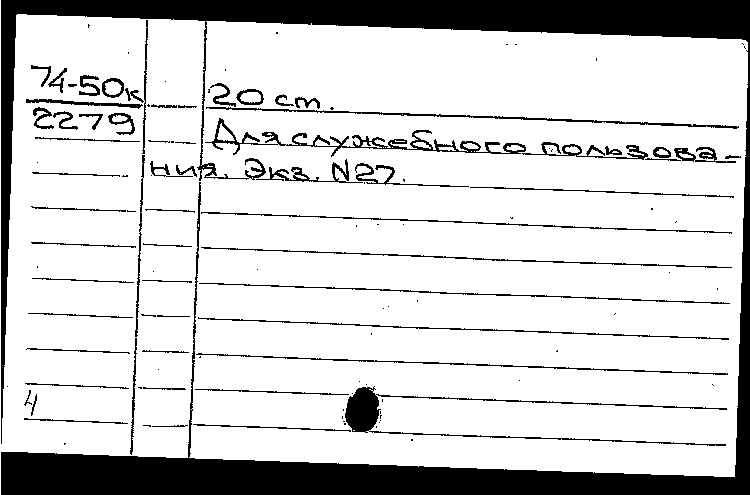 74-50к
2279
20 ст.
Для служебного пользова-
ния. Экз. N27.
4